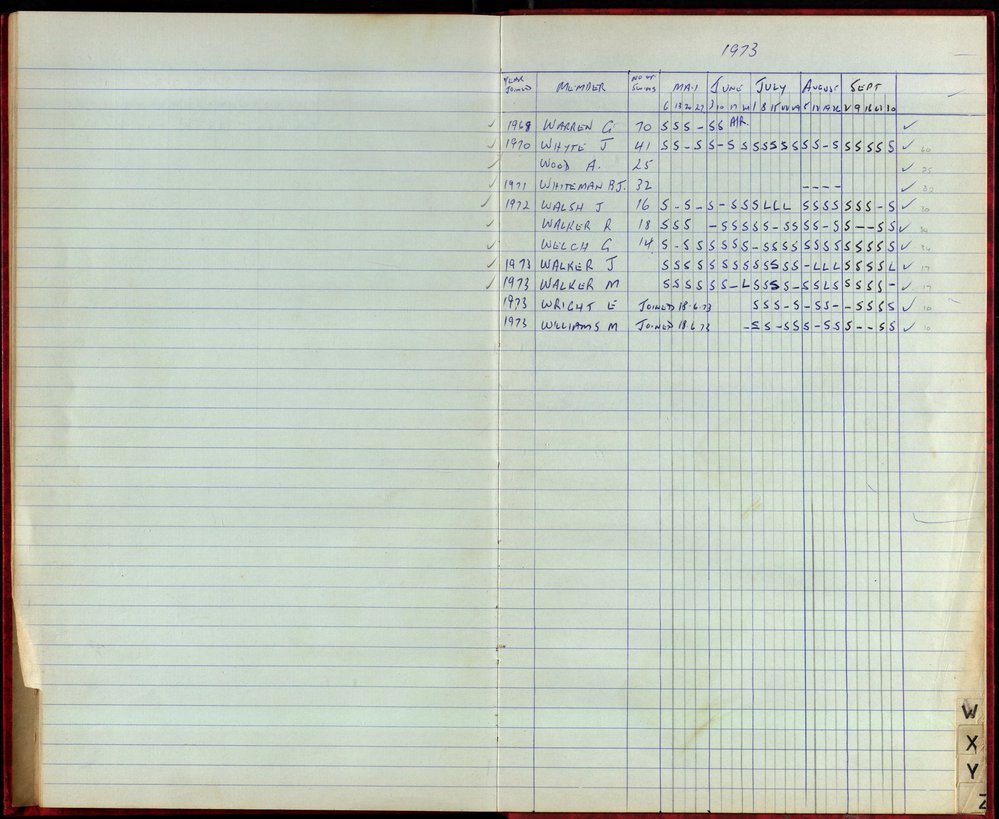 1973
YEAR JOINED MEMBER NO OF SWIMS MAY JUNE JULY AUGUST SEPT
6 13 20 27 3 10 17 24 1 8 15 22 29 5 12 19 26 2 9 16 23 30
✓ 1968 WARREN G 70 S S S - S S APR. ✓
✓ 1970 WHYTE J 41 S S - S S - S S S S S S S S S - S S S S S S ✓ 60
✓ WOOD A. 25 ✓ 25
✓ 1971 WHITEMAN B.J. 32 - - - - ✓ 32
✓ 1972 WALSH J 16 S - S - S - S S S S L L L S S S S S S S - S ✓ 30
✓ WALKER R 18 S S S - S S S S S - S S S S - S S - - S S ✓ 34
✓ WELCH G 14 S - S S S S S S - S S S S S S S S S S S S S ✓ 34
✓ 1973 WALKER J S S S S S S S S S S S S S - L L L S S S S L ✓ 17
✓ 1973 WALKER M S S S S S S - L S S S S - S S L S S S S S - ✓ 17
1973 WRIGHT E JOINED 18.6.73 S S S - S - S S - - S S S S ✓ 10
1973 WILLIAMS M JOINED 18.6.73 - S S - S S S - S S S - - S S ✓ 10
W
X
Y
Z